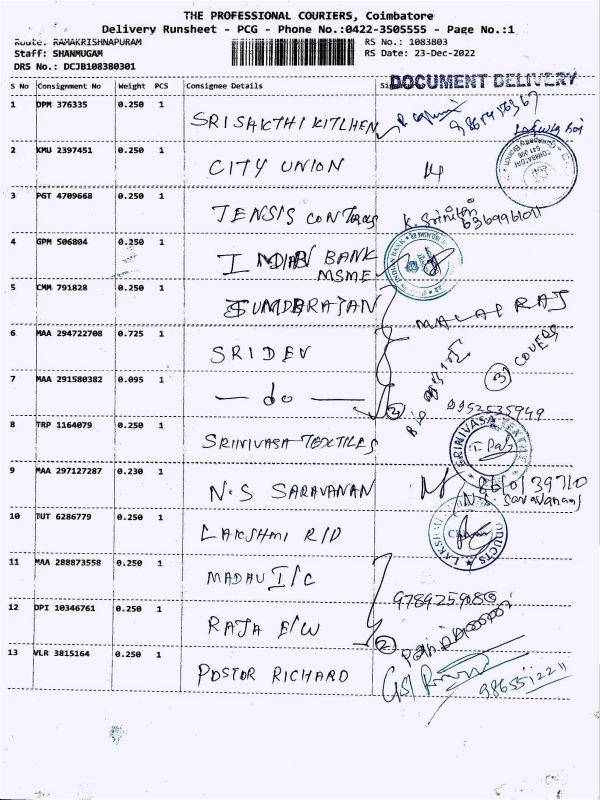 THE PROFESSIONAL COURIERS, Coimbatore
Delivery Runsheet - PCG - Phone No.:0422-3505555 - Page No.:1
Route: RAMAKRISHNAPURAM RS No.: 1083803
Staff: SHANMUGAM RS Date: 23-Dec-2022
DRS No.: DCJB108380301
DOCUMENT DELIVERY
S No Consignment No Weight PCS Consignee Details
1 DPM 376335 0.250 1 SRI SAKTHI KITLHEN
2 KMU 2397451 0.250 1 CITY UNION
3 PGT 4709668 0.250 1 TENSIS CONTROLS K. Srinithi 6369961011
4 GPM 506804 0.250 1 INDIAN BANK MSME
5 CMM 791828 0.250 1 SUNDARAJAN
6 MAA 294722708 0.725 1 SRIDEV
7 MAA 291580382 0.095 1 — do —
MALAI RAJ
3 COVERS
9952535949
8 TRP 1164079 0.250 1 SRINIVASA TEXTILES
SRINIVASA TEXTILE
9 MAA 297127287 0.230 1 N.S SARAVANAN 8610139710
N.S. Saravanan
10 TUT 6286779 0.250 1 LAKSHMI R/D
11 MAA 288873558 0.250 1 MADAV I/C
12 DPI 10346761 0.250 1 RAJA E/W
2
13 VLR 3815164 0.250 1 POSTOR RICHARD